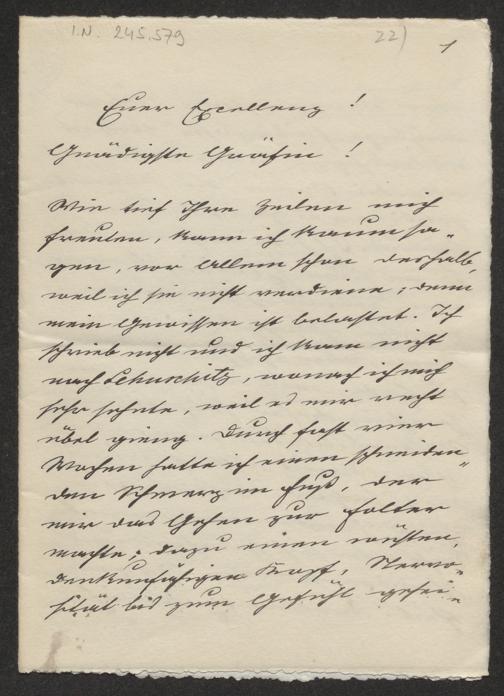 I.N. 245.579
22)
1
Euer Excellenz !
Gnädigste Gräfin !
Wie tief Ihre Zeilen mich
freuten, kann ich kaum sa-
gen, vor Allem schon deshalb,
weil ich sie nicht verdiene; denn
mein Gewissen ist belastet. Ich
schrieb nicht und ich kam nicht
nach Lehuschitz, wonach ich mich
sehr sehnte, weil es mir recht
übel gieng. Durch fast vier
Wochen hatte ich einen schneiden-
den Schmerz im Fuß, der
mir das Gehen zur Folter
machte; dazu einen wüsten,
denkunfähigen Kopf, Nervo-
sität bis zum Gefühl